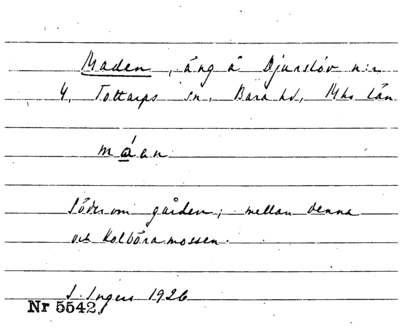 Maden, äng å Djurslöv n:r
4, Tottarps sn, Bara hd, Mhs län
måan
Söder om gården; mellan denna
och Kolböra mossen.
I. Ingers 1926
Nr 5542